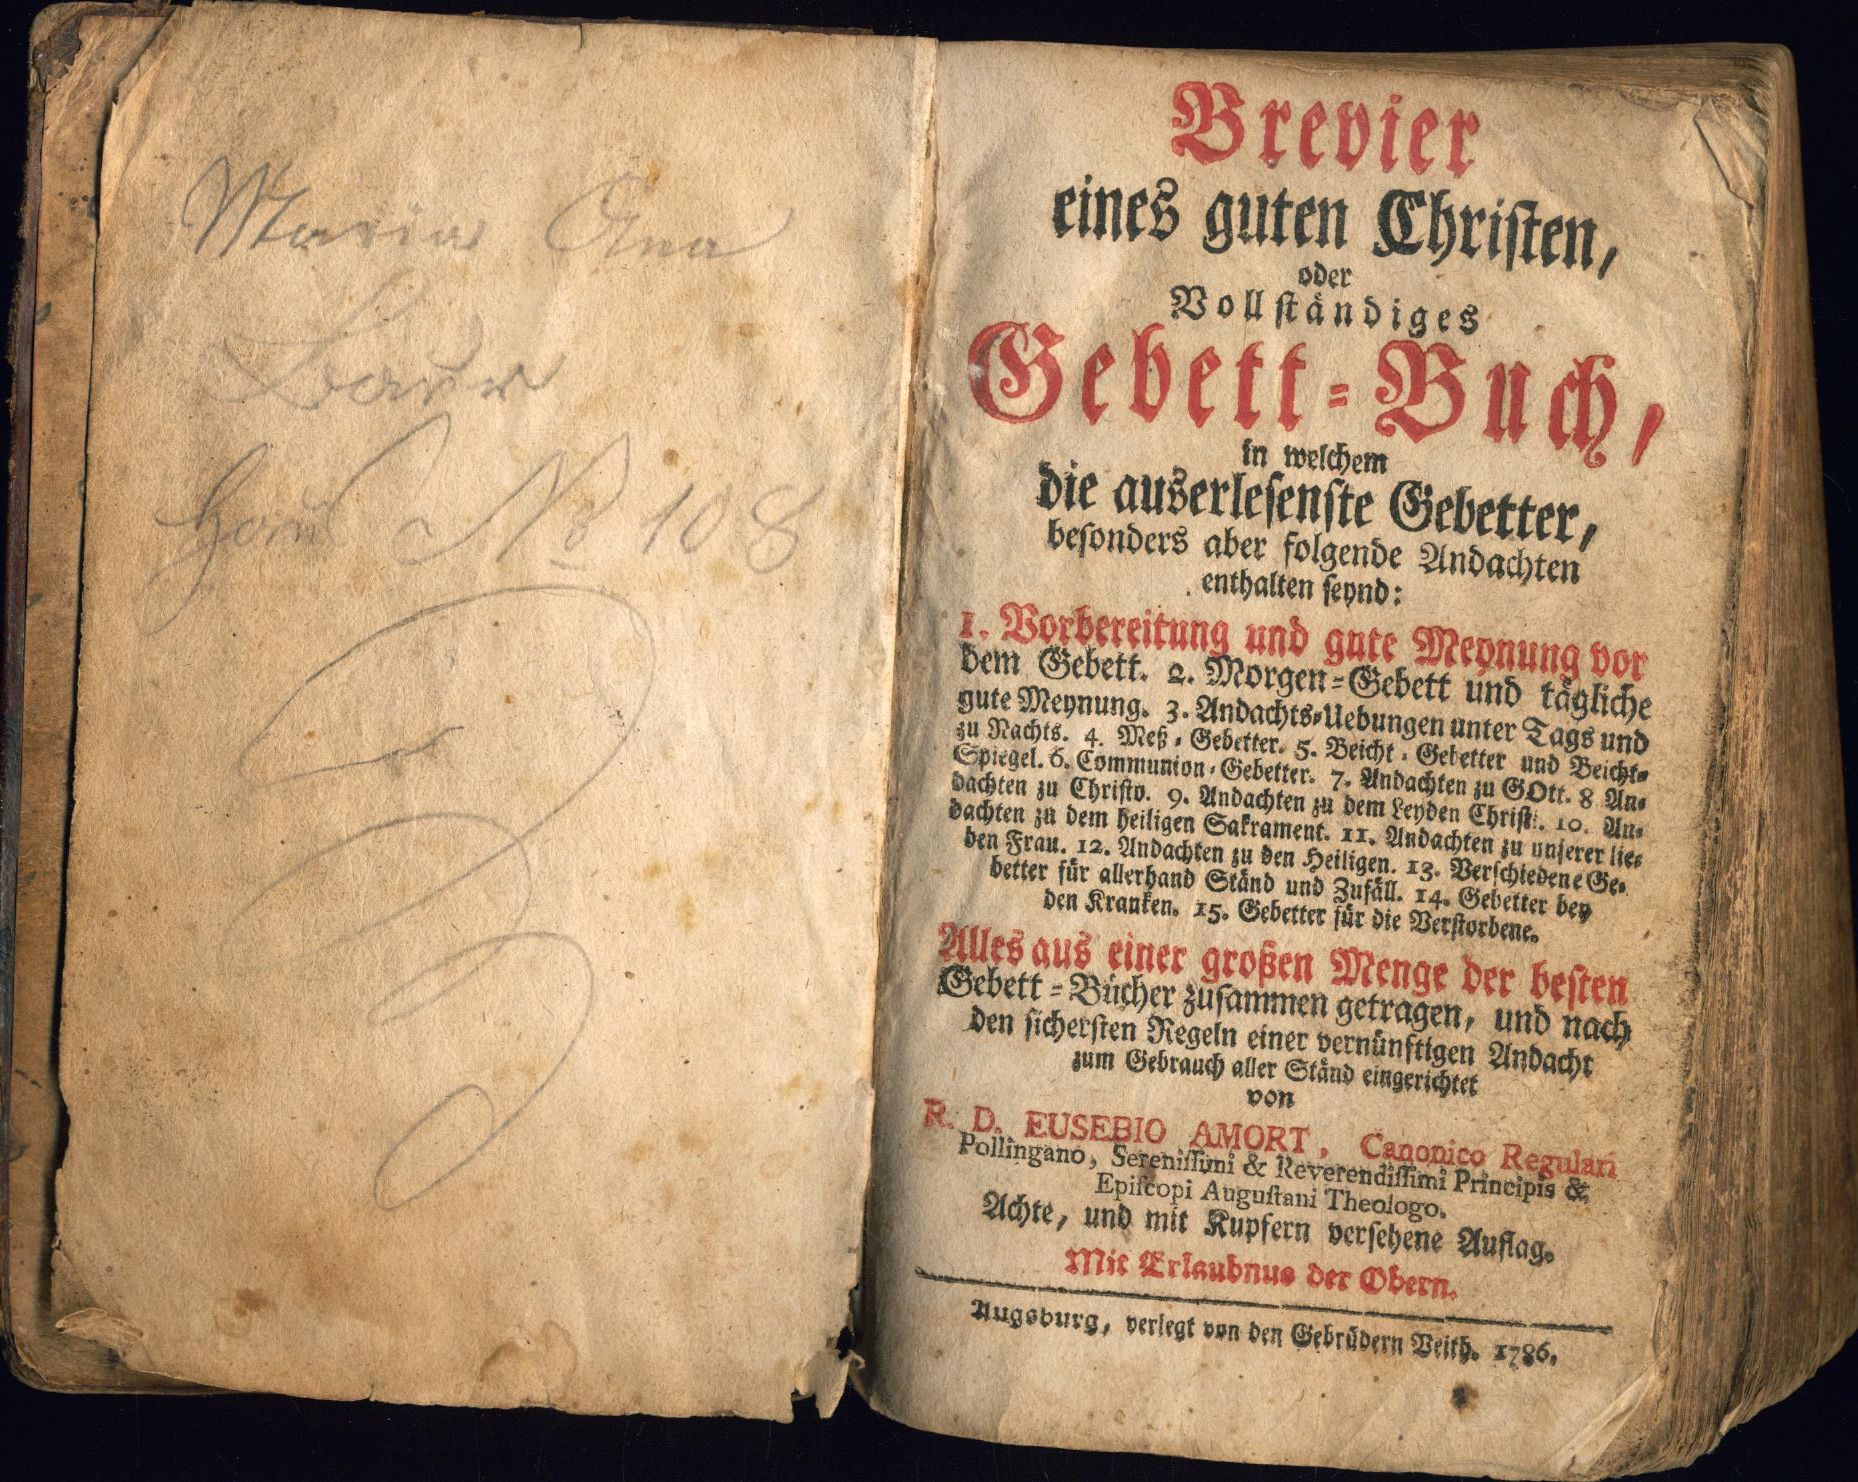 Maria Ana
Baur
Haus No 108
Brevier
eines guten Christen,
oder
Vollständiges
Gebett=Buch,
in welchem
die auserlesenste Gebetter,
besonders aber folgende Andachten
enthalten seynd:
1. Vorbereitung und gute Meynung vor
dem Gebett. 2. Morgen=Gebett und tägliche
gute Meynung. 3. Andachts=Uebungen unter Tags und
zu Nachts. 4. Meß=Gebetter. 5. Beicht=Gebetter und Beicht=
Spiegel. 6. Communion=Gebetter. 7. Andachten zu GOtt. 8 An=
dachten zu Christo. 9. Andachten zu dem Leyden Christi. 10. An=
dachten zu dem heiligen Sakrament. 11. Andachten zu unserer lie=
ben Frau. 12. Andachten zu den Heiligen. 13. Verschiedene Ge=
better für allerhand Ständ und Zufäll. 14. Gebetter bey
den Kranken. 15. Gebetter für die Verstorbene.
Alles aus einer großen Menge der besten
Gebett=Bücher zusammen getragen, und nach
den sichersten Regeln einer vernünftigen Andacht
zum Gebrauch aller Ständ eingerichtet
von
R. D. EUSEBIO AMORT, Canonico Regulari
Pollingano, Sereniſſimi & Reverendiſſimi Principis &
Epiſcopi Auguſtani Theologo.
Achte, und mit Kupfern versehene Auflag.
Mit Erlaubnus der Obern.
Augsburg, verlegt von den Gebrüdern Veith. 1786.